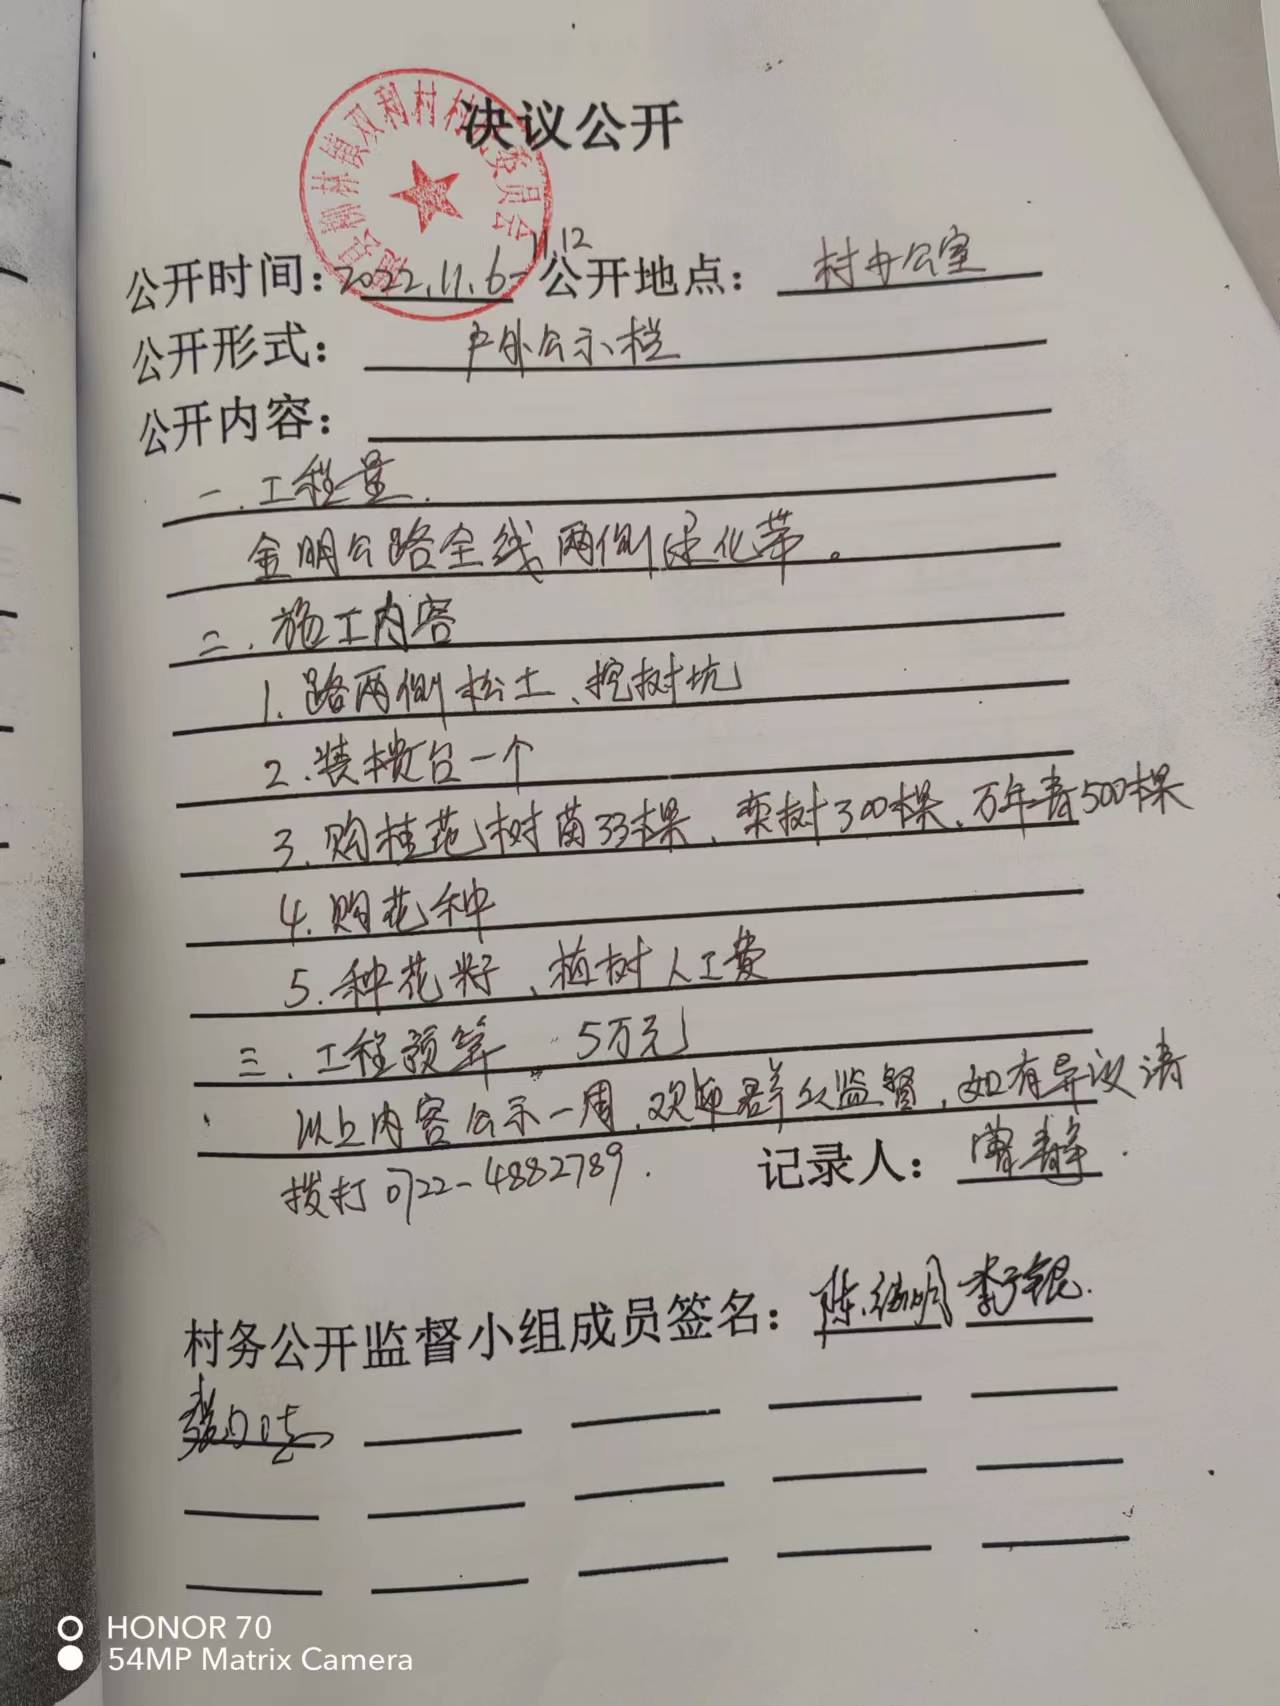 决议公开
柳林镇双利村村民委员会
公开时间：2022.11.6-11.12 公开地点：村办公室
公开形式：户外公示栏
公开内容：
一.工程量.
金明公路全线两侧绿化带。
二.施工内容
1.路两侧松土、挖树坑
2.装横台一个
3.购桂花树苗33棵、栾树300棵、万年青500棵
4.购花种
5.种花籽、植树人工费
三.工程预算 5万元
以上内容公示一周,欢迎群众监督,如有异议请
拨打0722-4882789. 记录人：曹静
村务公开监督小组成员签名：
HONOR 70
54MP Matrix Camera